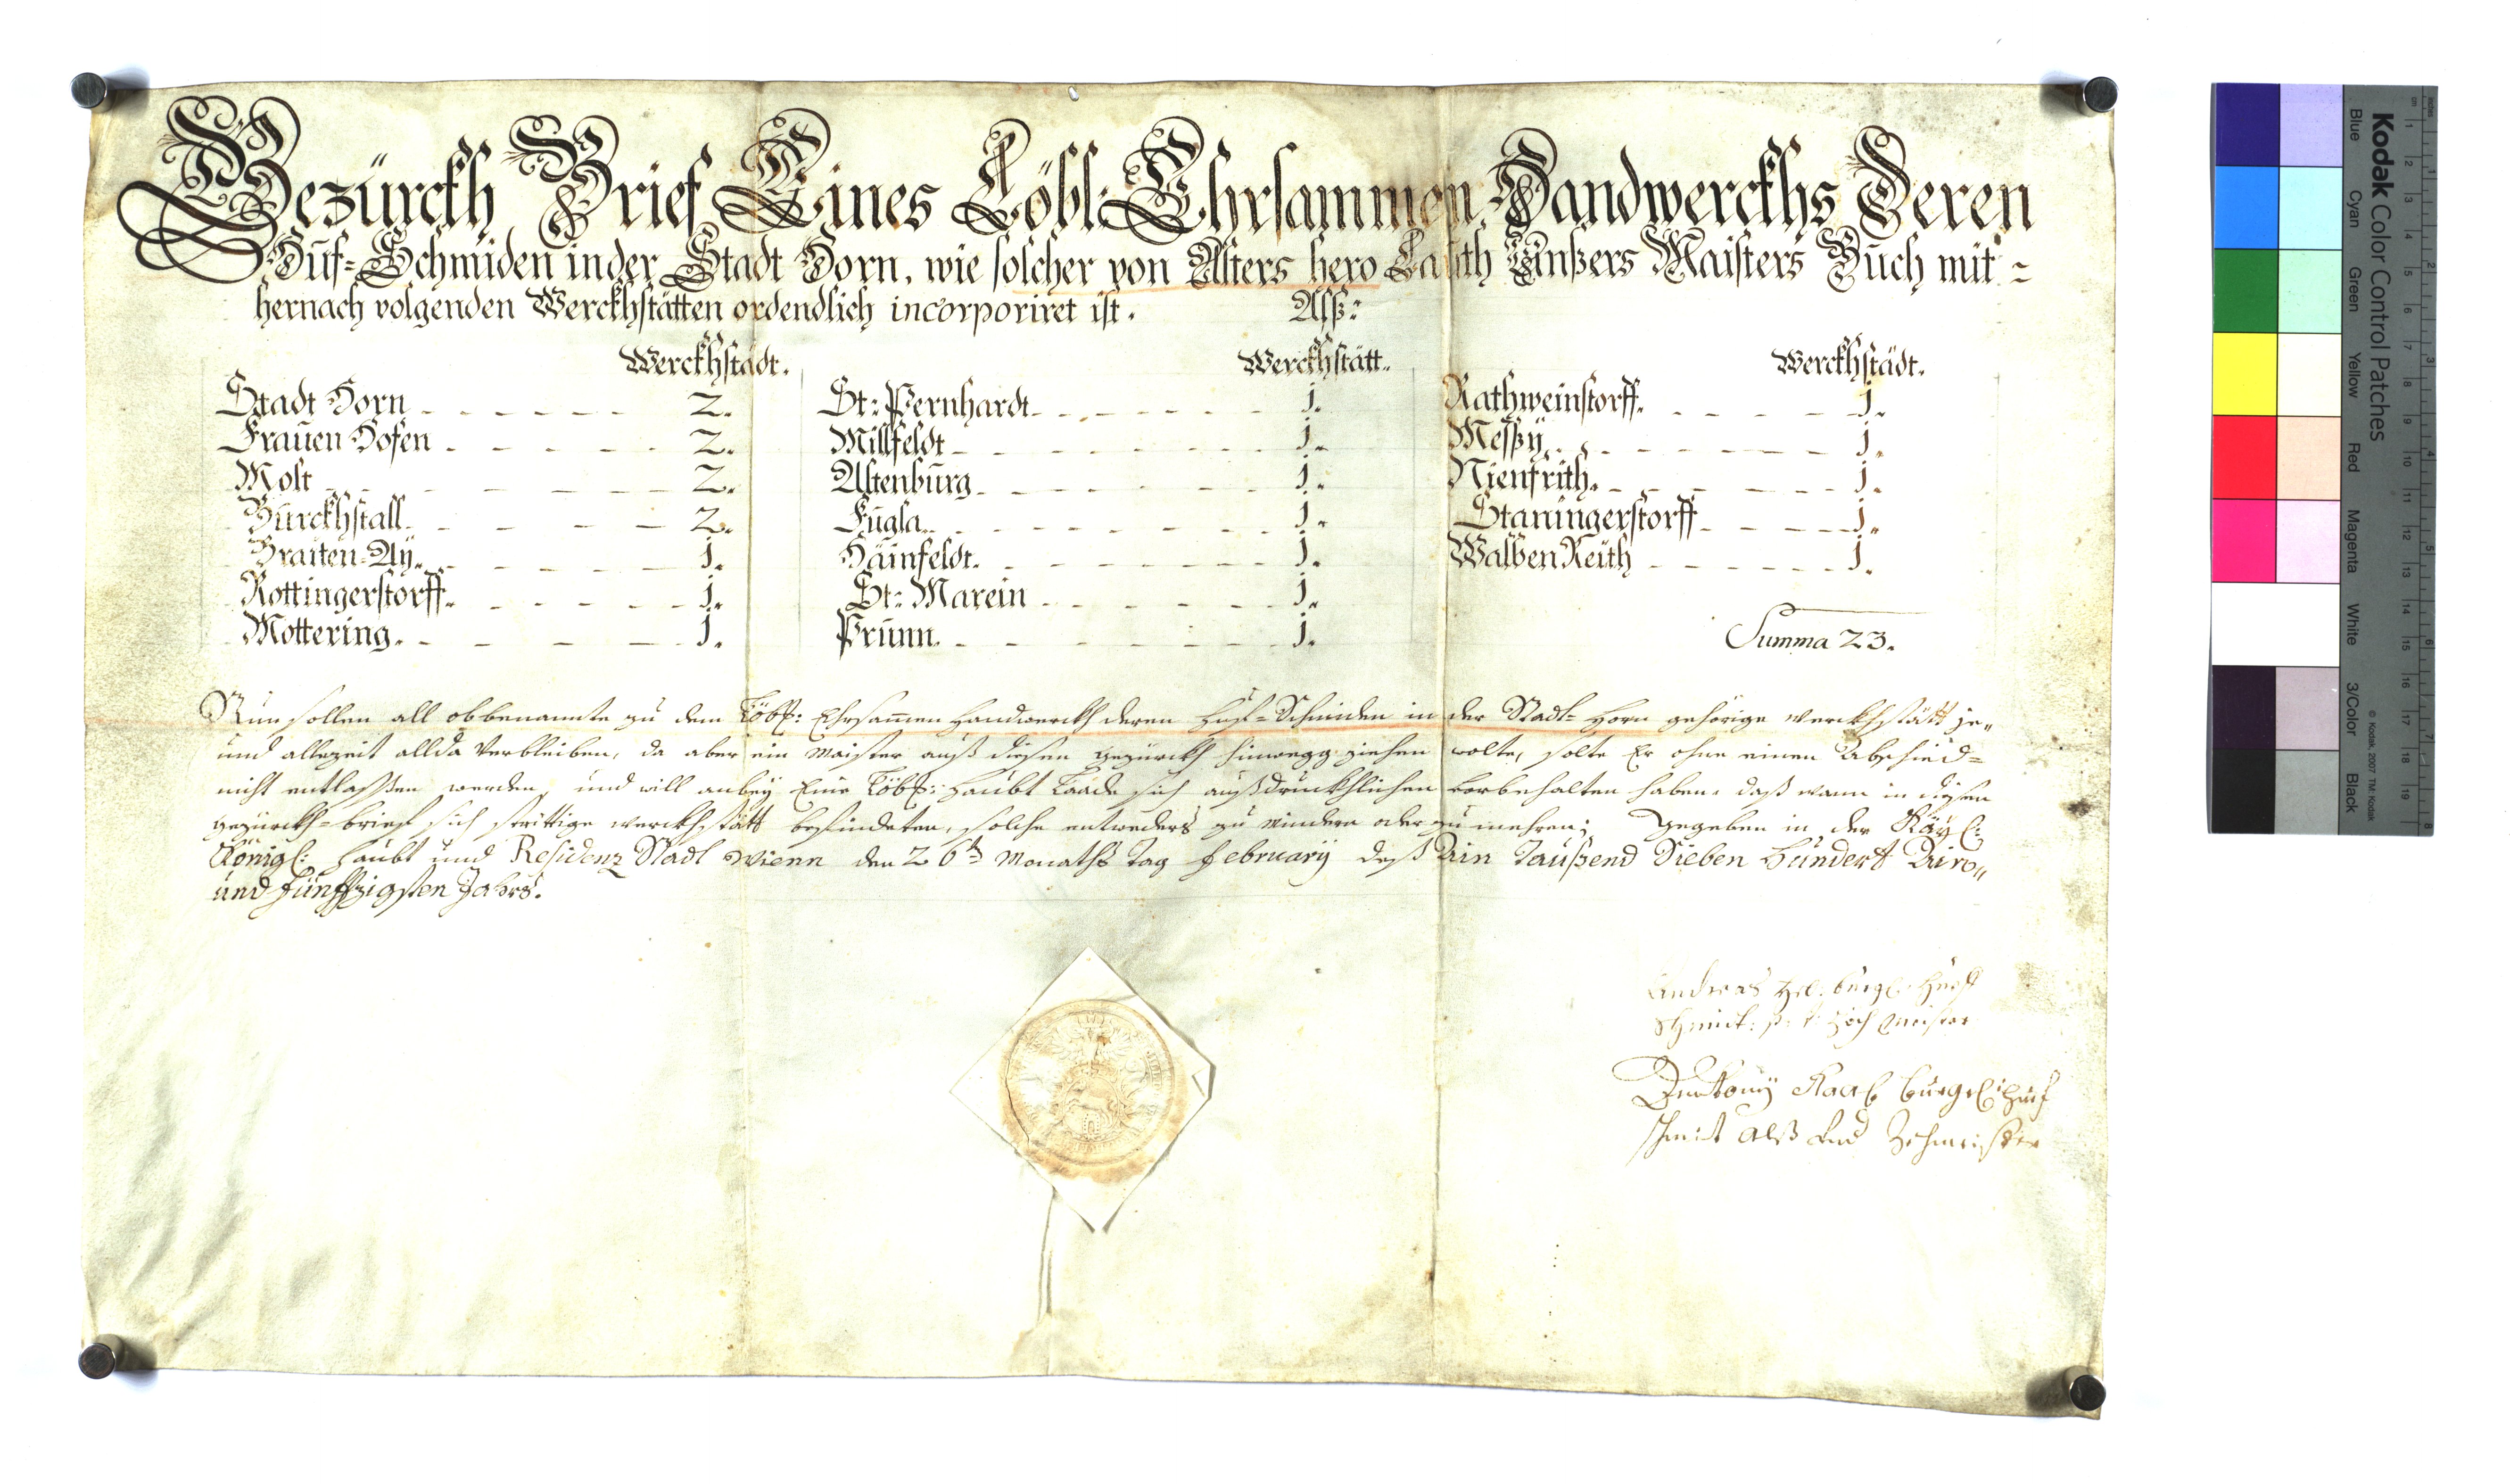 Bezürckh Brief Eines Löbl: Ehrsammen Handwerckhs Deren
Huf-Schmiden in der Stadt Horn, wie solcher von Alters hero Lauth Unßers Maisters Buch mit =
hernach volgenden Werckhstätten ordendlich incorporiret ist. Alß:
Werckhstädt. Werckhstätt. Werckhstädt.
Stadt Horn 2. St: Pernhardt 1. Rathweinstorff. 1.
Frauen Hofen 2. Millfeldt 1. Meßÿ 1.
Molt 2. Altenburg 1. Nienfrith. 1.
Burckhstall. 2. Fugla. 1. Staningerstorff 1.
Braiten-Aÿ. 1. Hainfeldt. 1. Walben Reith 1.
Rottingerstorff. 1. St: Marein 1.
Mottering. 1. Prunn. 1. Summa 23.
Nun sollen all obbenannte zu dem Löbl: Ehrsamen Handwerckh deren Huf-Schmiden in der Stadt Horn gehörige werckhstätt je„
und allezeit allda Verbleiben, da aber ein Maister auß diesen gezürckh hinwegg ziehen wolte, solte Er ohne einen Abschied=
nicht entlaßen werden, und will anbey Eine Löbl: Haubt Laade sich außdruckhlichen vorbehalten haben, daß wann in diesen
gezürckh-brief sich strittige werckhstätt befindeten, solche entweders zu mindern oder zu mehren; Gegeben in der Kaÿl:
Königl: Haubt und Residenz Stadt Wienn den 26ten Monaths Tag february deß Ain Taußend Sieben Hundert Drey„
und fünffzigsten Jahrs.
Andreas burgl: Hueff
Schmidt Zöch Meister
Anthony Karl burgl: Huf
schmidt alß And Zehmeister
Kodak Color Control Patches
© Kodak, 2007 TM: Kodak
Blue Cyan Green Yellow Red Magenta White 3/Color Black
inches 1 2 3 4 5 6 7 8
cm 1 2 3 4 5 6 7 8 9 10 11 12 13 14 15 16 17 18 19